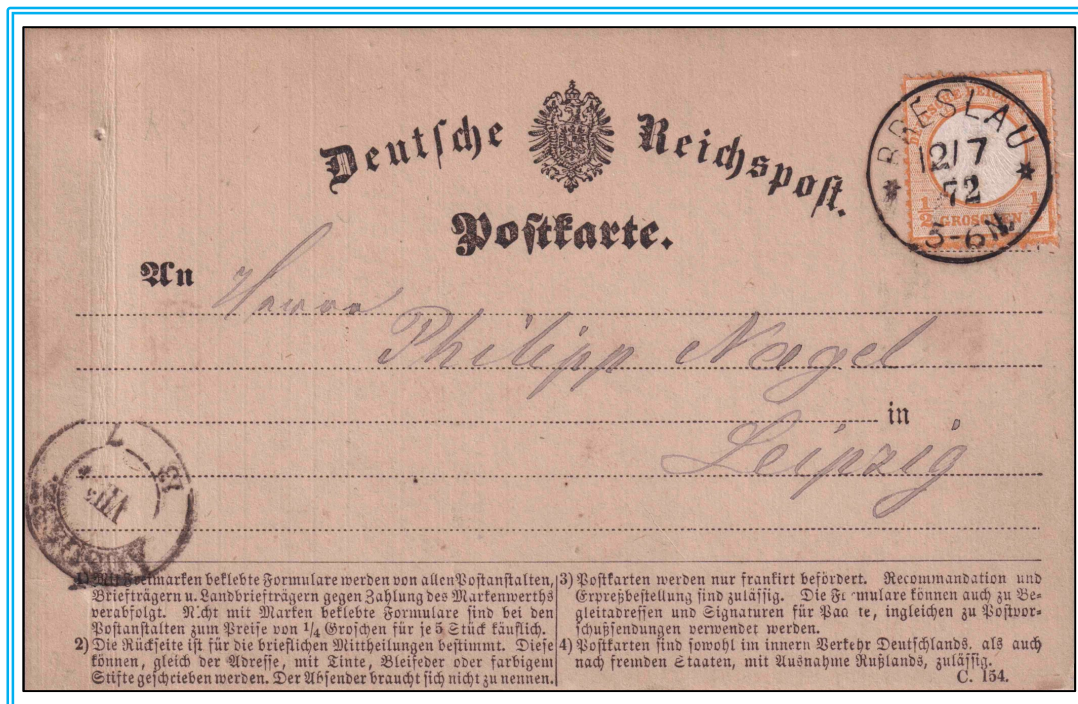 Deutsche Reichspost.
Postkarte.
DEUTSCHE REICHS
½ GROSCHEN ½
* BRESLAU *
12/7
72
5-6N.
An Herrn
Philipp Nagel
in
Leipzig
13
7
VII
1) Mit Freimarken beklebte Formulare werden von allen Postanstalten,
Briefträgern u. Landbriefträgern gegen Zahlung des Markenwerths
verabfolgt. Nicht mit Marken beklebte Formulare sind bei den
Postanstalten zum Preise von 1/4 Groschen für je 5 Stück käuflich.
2) Die Rückseite ist für die brieflichen Mittheilungen bestimmt. Diese
können, gleich der Adresse, mit Tinte, Bleifeder oder farbigem
Stifte geschrieben werden. Der Absender braucht sich nicht zu nennen.
3) Postkarten werden nur frankirt befördert. Recommandation und
Expreßbestellung sind zulässig. Die Fo mulare können auch zu Be-
gleitadressen und Signaturen für Pac te, ingleichen zu Postvor-
schußsendungen verwendet werden.
4) Postkarten sind sowohl im innern Verkehr Deutschlands, als auch
nach fremden Staaten, mit Ausnahme Rußlands, zulässig.
C. 154.